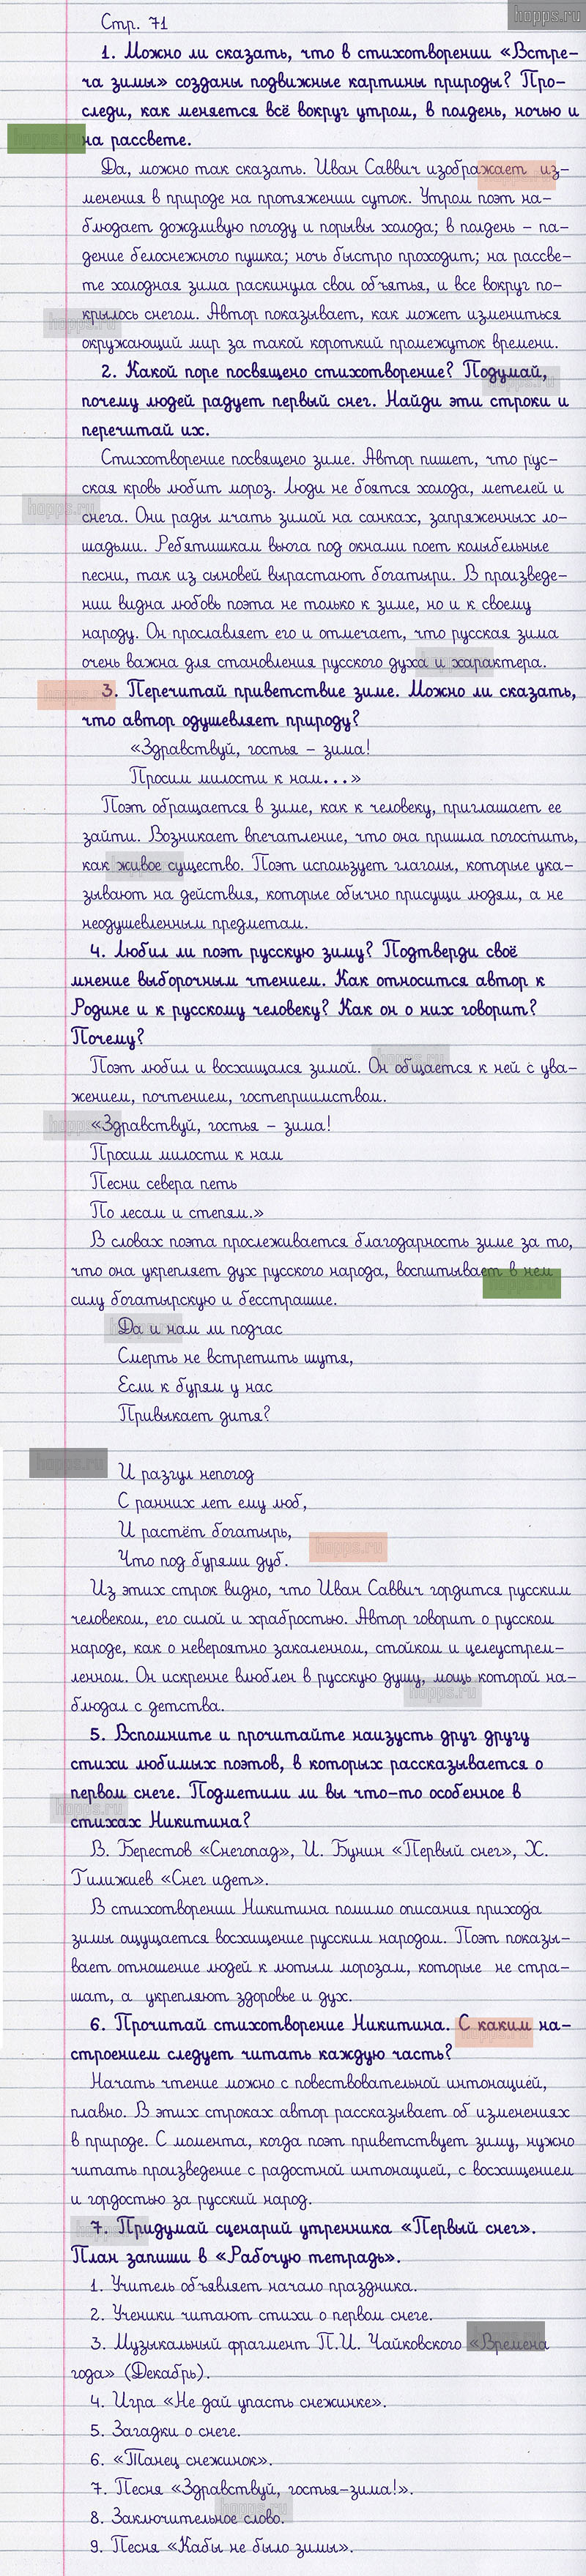 hopps.ru
Стр. 71
1. Можно ли сказать, что в стихотворении «Встре-
ча зимы» созданы подвижные картины природы? Про-
следи, как меняется всё вокруг утром, в полдень, ночью и
на рассвете.
Да, можно так сказать. Иван Саввич изображает из-
менения в природе на протяжении суток. Утром поэт на-
блюдает дождливую погоду и порывы холода; в полдень – па-
дение белоснежного пушка; ночь быстро проходит; на рассве-
те холодная зима раскинула свои объятья, и все вокруг по-
крылось снегом. Автор показывает, как может измениться
окружающий мир за такой короткий промежуток времени.
2. Какой поре посвящено стихотворение? Подумай,
почему людей радует первый снег. Найди эти строки и
перечитай их.
Стихотворение посвящено зиме. Автор пишет, что рус-
ская кровь любит мороз. Люди не боятся холода, метелей и
снега. Они рады мчать зимой на санках, запряженных ло-
шадьми. Ребятишкам вьюга под окнами поет колыбельные
песни, так из сыновей вырастают богатыри. В произведе-
нии видна любовь поэта не только к зиме, но и к своему
народу. Он прославляет его и отмечает, что русская зима
очень важна для становления русского духа и характера.
3. Перечитай приветствие зиме. Можно ли сказать,
что автор одушевляет природу?
«Здравствуй, гостья – зима!
Просим милости к нам...»
Поэт обращается в зиме, как к человеку, приглашает ее
зайти. Возникает впечатление, что она пришла погостить,
как живое существо. Поэт использует глаголы, которые ука-
зывают на действия, которые обычно присущи людям, а не
неодушевленным предметам.
4. Любил ли поэт русскую зиму? Подтверди своё
мнение выборочным чтением. Как относится автор к
Родине и к русскому человеку? Как он о них говорит?
Почему?
Поэт любил и восхищался зимой. Он общается к ней с ува-
жением, почтением, гостеприимством.
«Здравствуй, гостья – зима!
Просим милости к нам
Песни севера петь
По лесам и степям.»
В словах поэта прослеживается благодарность зиме за то,
что она укрепляет дух русского народа, воспитывает в нем
силу богатырскую и бесстрашие.
Да и нам ли подчас
Смерть не встретить шутя,
Если к бурям у нас
Привыкает дитя?
И разгул непогод
С ранних лет ему люб,
И растёт богатырь,
Что под бурями дуб.
Из этих строк видно, что Иван Саввич гордится русским
человеком, его силой и храбростью. Автор говорит о русском
народе, как о невероятно закаленном, стойком и целеустрем-
ленном. Он искренне влюблен в русскую душу, мощь которой на-
блюдал с детства.
5. Вспомните и прочитайте наизусть друг другу
стихи любимых поэтов, в которых рассказывается о
первом снеге. Подметили ли вы что-то особенное в
стихах Никитина?
В. Берестов «Снегопад», И. Бунин «Первый снег», Х.
Гилижиев «Снег идет».
В стихотворении Никитина помимо описания прихода
зимы ощущается восхищение русским народом. Поэт показы-
вает отношение людей к лютым морозам, которые не стра-
шат, а укрепляют здоровье и дух.
6. Прочитай стихотворение Никитина. С каким на-
строением следует читать каждую часть?
Начать чтение можно с повествовательной интонацией,
плавно. В этих строках автор рассказывает об изменениях
в природе. С момента, когда поэт приветствует зиму, нужно
читать произведение с радостной интонацией, с восхищением
и гордостью за русский народ.
7. Придумай сценарий утренника «Первый снег».
План запиши в «Рабочую тетрадь».
1. Учитель объявляет начало праздника.
2. Ученики читают стихи о первом снеге.
3. Музыкальный фрагмент П.И. Чайковского «Времена
года» (Декабрь).
4. Игра «Не дай упасть снежинке».
5. Загадки о снеге.
6. «Танец снежинок».
7. Песня «Здравствуй, гостья-зима!».
8. Заключительное слово.
9. Песня «Кабы не было зимы».